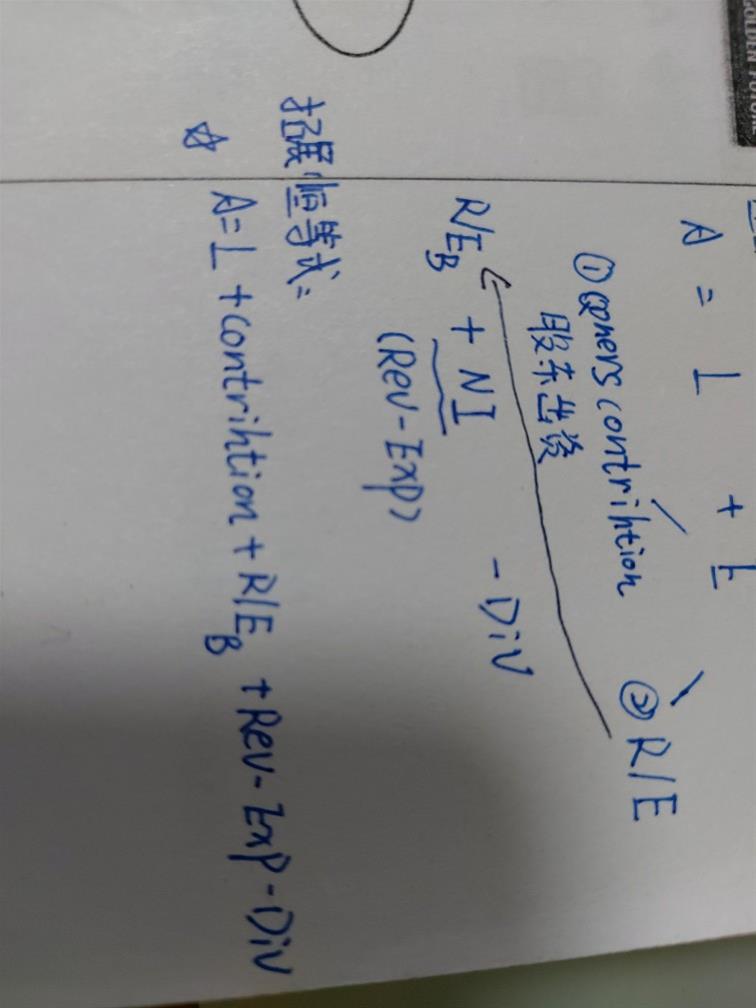 A = L + E
① owners contrihtion ② R/E
股东出资
R/E_B + NI - Div
(Rev-Exp)
拓展恒等式:
☆ A=L+contrihtion+R/E_B+Rev-Exp-Div